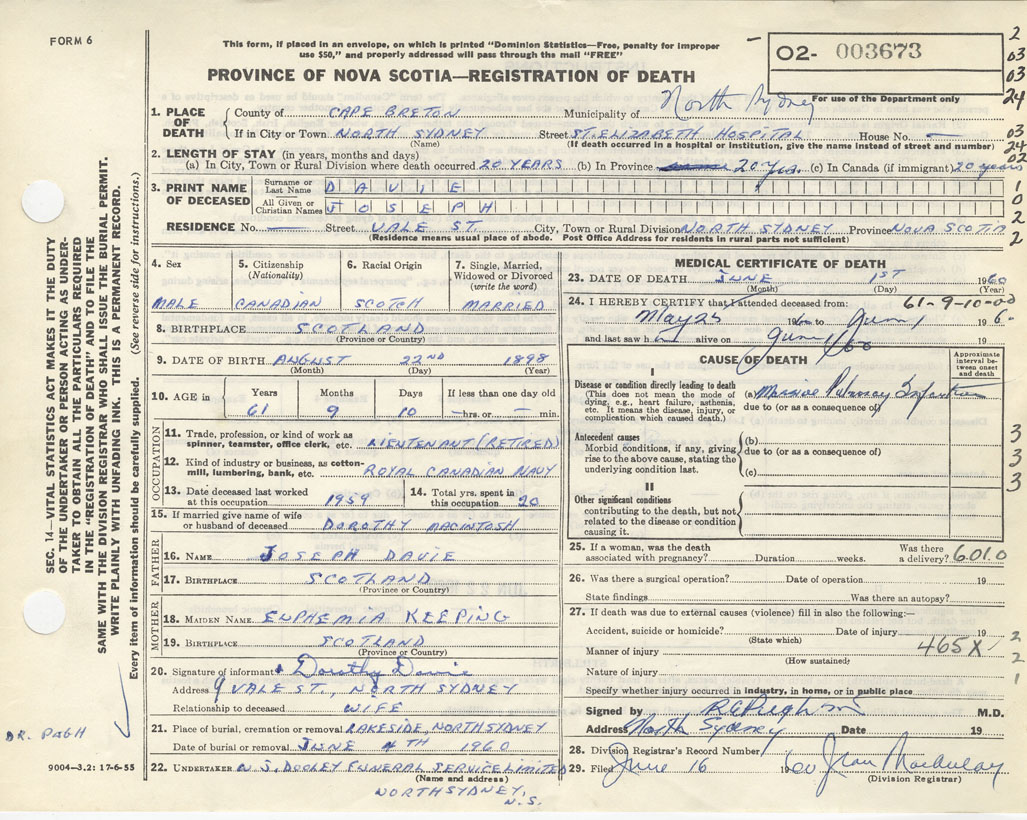 FORM 6
This form, if placed in an envelope, on which is printed "Dominion Statistics—Free, penalty for improper
use $50," and properly addressed will pass through the mail "FREE"
PROVINCE OF NOVA SCOTIA—REGISTRATION OF DEATH
02- 003673
For use of the Department only
2
03
03
24
03
24
02
1
0
2
2
North Sydney
1. PLACE OF DEATH { County of CAPE BRETON Municipality of
If in City or Town NORTH SYDNEY Street ST. ELIZABETH HOSPITAL House No. —
(Name) (If death occurred in a hospital or institution, give the name instead of street and number)
2. LENGTH OF STAY (in years, months and days)
(a) In City, Town or Rural Division where death occurred 20 YEARS (b) In Province 20 yrs. (c) In Canada (if immigrant) 20 years
3. PRINT NAME OF DECEASED { Surname or Last Name DAVIE
All Given or Christian Names JOSEPH
RESIDENCE No. — Street VALE ST. City, Town or Rural Division NORTH SYDNEY Province NOVA SCOTIA
(Residence means usual place of abode. Post Office Address for residents in rural parts not sufficient)
4. Sex 5. Citizenship (Nationality) 6. Racial Origin 7. Single, Married, Widowed or Divorced (write the word)
MALE CANADIAN SCOTCH MARRIED
8. BIRTHPLACE SCOTLAND
(Province or Country)
9. DATE OF BIRTH AUGUST 22ND 1898
(Month) (Day) (Year)
10. AGE in { Years Months Days If less than one day
61 9 10 — hrs. or — min.
OCCUPATION
11. Trade, profession, or kind of work as spinner, teamster, office clerk, etc. LIEUTENANT (RETIRED)
12. Kind of industry or business, as cotton-mill, lumbering, bank, etc. ROYAL CANADIAN NAVY
13. Date deceased last worked at this occupation 1959 14. Total yrs. spent in this occupation 20
15. If married give name of wife or husband of deceased DOROTHY MACINTOSH
FATHER
16. NAME JOSEPH DAVIE
17. BIRTHPLACE SCOTLAND
(Province or Country)
MOTHER
18. MAIDEN NAME EUPHEMIA KEEPING
19. BIRTHPLACE SCOTLAND
(Province or Country)
20. Signature of informant Dorothy Davie
Address 9 VALE ST., NORTH SYDNEY
Relationship to deceased WIFE
21. Place of burial, cremation or removal LAKESIDE, NORTH SYDNEY
Date of burial or removal JUNE 4TH 1960
22. UNDERTAKER N.S. DOOLEY FUNERAL SERVICE LIMITED
(Name and address)
NORTH SYDNEY,
N.S.
MEDICAL CERTIFICATE OF DEATH
23. DATE OF DEATH JUNE 1ST 1960
(Month) (Day) (Year)
24. I HEREBY CERTIFY that I attended deceased from: 61-9-10-0-0
May 25 1960 to June 1 196-
and last saw h im alive on June 1/60
CAUSE OF DEATH
Approximate interval between onset and death
I
Disease or condition directly leading to death
(This does not mean the mode of dying, e.g., heart failure, asthenia, etc. It means the disease, injury, or complication which caused death.)
(a) Massive Pulmonary Infarction
due to (or as a consequence of)
Antecedent causes
Morbid conditions, if any, giving rise to the above cause, stating the underlying condition last.
(b)
due to (or as a consequence of)
(c)
3
3
3
3
II
Other significant conditions
contributing to the death, but not related to the disease or condition causing it.
25. If a woman, was the death associated with pregnancy? Duration weeks. Was there a delivery? 6010
26. Was there a surgical operation? Date of operation 19
State findings Was there an autopsy?
27. If death was due to external causes (violence) fill in also the following:—
Accident, suicide or homicide? Date of injury 19
(State which)
Manner of injury 465X
(How sustained)
Nature of injury
2
2
1
Specify whether injury occurred in industry, in home, or in public place
Signed by M.D.
Address North Sydney Date 19
28. Division Registrar's Record Number
29. Filed June 16 1960 Jean
(Division Registrar)
SEC. 14—VITAL STATISTICS ACT MAKES IT THE DUTY
OF THE UNDERTAKER OR PERSON ACTING AS UNDER-
TAKER TO OBTAIN ALL THE PARTICULARS REQUIRED
IN THE "REGISTRATION OF DEATH" AND TO FILE THE
SAME WITH THE DIVISION REGISTRAR WHO SHALL ISSUE THE BURIAL PERMIT.
WRITE PLAINLY WITH UNFADING INK. THIS IS A PERMANENT RECORD.
Every item of information should be carefully supplied. (See reverse side for instructions.)
DR. PUGH
9004—3.2: 17-6-55